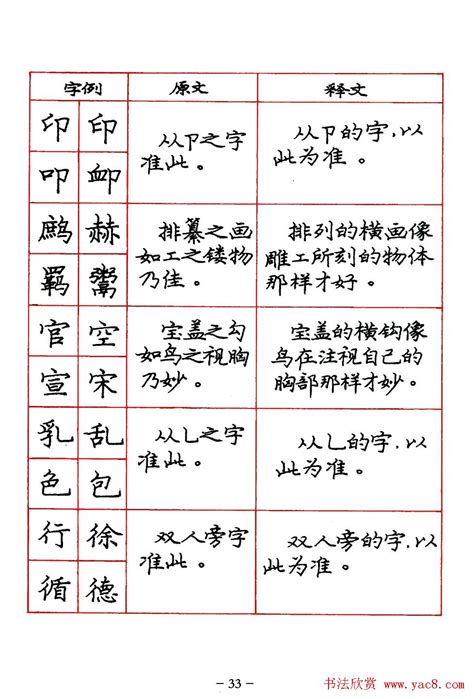 字例 原文 释文
卬 印
从卩之字
准此。
从卩的字，以
此为准。
叩 卹
鹧 赫
排纂之画
如工之镂物
乃佳。
排列的横画像
雕工所刻的物体
那样才好。
羁 鬻
官 空
宝盖之勾
如鸟之视胸
乃妙。
宝盖的横钩像
鸟在注视自己的
胸部那样才妙。
宣 宋
乳 乱
从乚之字
准此。
从乚的字，以
此为准。
色 包
行 徐
双人旁字
准此。
双人旁的字，以
此为准。
循 德
- 33 -
书法欣赏 www.yac8.com